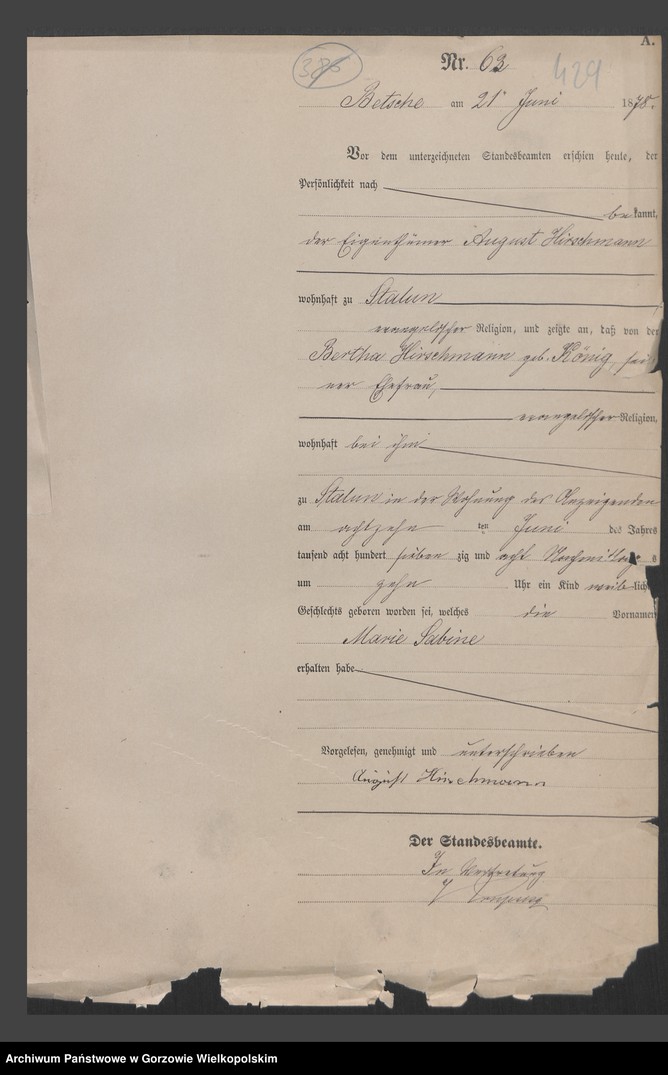 A.
385
Nr. 63
429
Betsche am 21ten Juni 1878.
Vor dem unterzeichneten Standesbeamten erschien heute, der
Persönlichkeit nach
bekannt,
der Eigenthümer August Hirschmann
wohnhaft zu Stalun
evangelischer Religion, und zeigte an, daß von der
Bertha Hirschmann geb. König, sei
ner Ehefrau,
evangelischer Religion,
wohnhaft bei ihm
zu Stalun in der Wohnung des Anzeigenden
am achtzehn ten Juni des Jahres
tausend acht hundert siebenzig und acht Nachmittags
um zehn Uhr ein Kind weiblich
Geschlechts geboren worden sei, welches die Vornamen
Marie Sabine
erhalten habe
Vorgelesen, genehmigt und unterschrieben
August Hirschmann
Der Standesbeamte.
In Vertretung
Archiwum Państwowe w Gorzowie Wielkopolskim